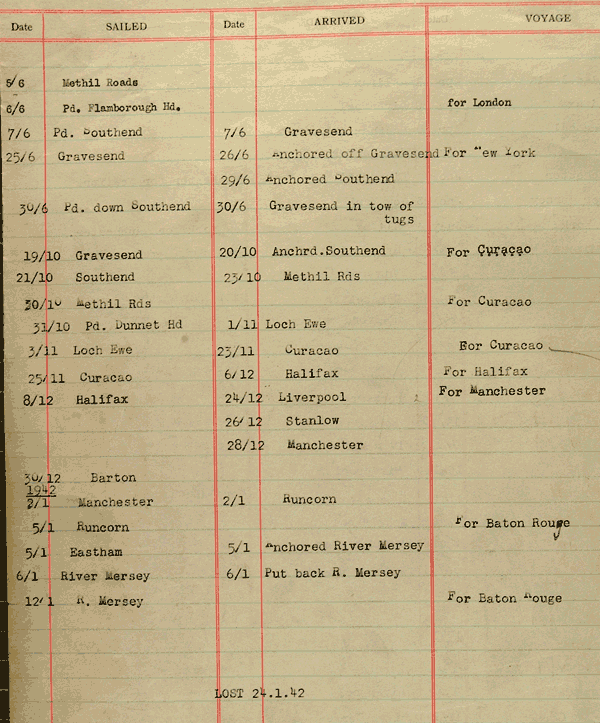 Date SAILED Date ARRIVED VOYAGE
5/6 Methil Roads
6/6 Pd. Flamborough Hd. for London
7/6 Pd. Southend 7/6 Gravesend
25/6 Gravesend 26/6 Anchored off Gravesend For New York
29/6 Anchored Southend
30/6 Pd. down Southend 30/6 Gravesend in tow of
tugs
19/10 Gravesend 20/10 Anchrd. Southend For Curaçao
21/10 Southend 23/10 Methil Rds
30/10 Methil Rds For Curacao
31/10 Pd. Dunnet Hd 1/11 Loch Ewe
3/11 Loch Ewe 23/11 Curacao For Curacao
25/11 Curacao 6/12 Halifax For Halifax
8/12 Halifax 24/12 Liverpool For Manchester
26/12 Stanlow
28/12 Manchester
30/12 Barton
1942
2/1 Manchester 2/1 Runcorn
5/1 Runcorn For Baton Rouge
5/1 Eastham 5/1 Anchored River Mersey
6/1 River Mersey 6/1 Put back R. Mersey
12/1 R. Mersey For Baton Rouge
LOST 24.1.42